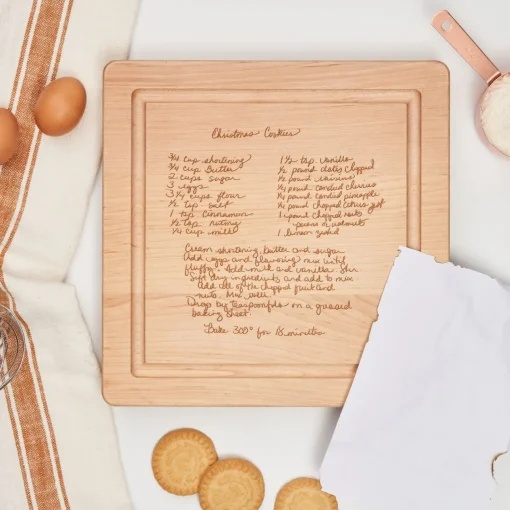 Christmas Cookies
3/4 cup shortening
1/4 cup butter
2 cups sugar
3 eggs
3 1/4 cups flour
1/2 tsp salt
1 tsp cinnamon
1/2 tsp nutmeg
1/4 cup milk
1 1/2 tsp vanilla
1/2 pound dates chopped
1/2 pound raisins
1/4 pound candied cherries
1/4 pound candied pineapple
1/4 pound chopped citrus
1 pound chopped nuts
pecans or walnuts
1 lemon
Cream shortening, butter and sugar
Add eggs and flavoring mix until
fluffy. Add milk and vanilla.
dry ingredients and add to mix
Add all of the chopped fruit and
nuts. Mix well.
Drop by teaspoonfuls on a greased
baking sheet.
Bake 300° for 18 minutes